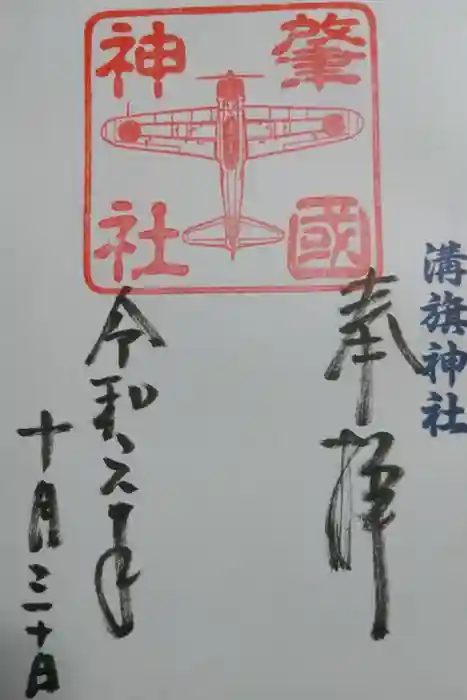 肇國
神社
溝旗神社
奉拝
令和六年
十月三十日